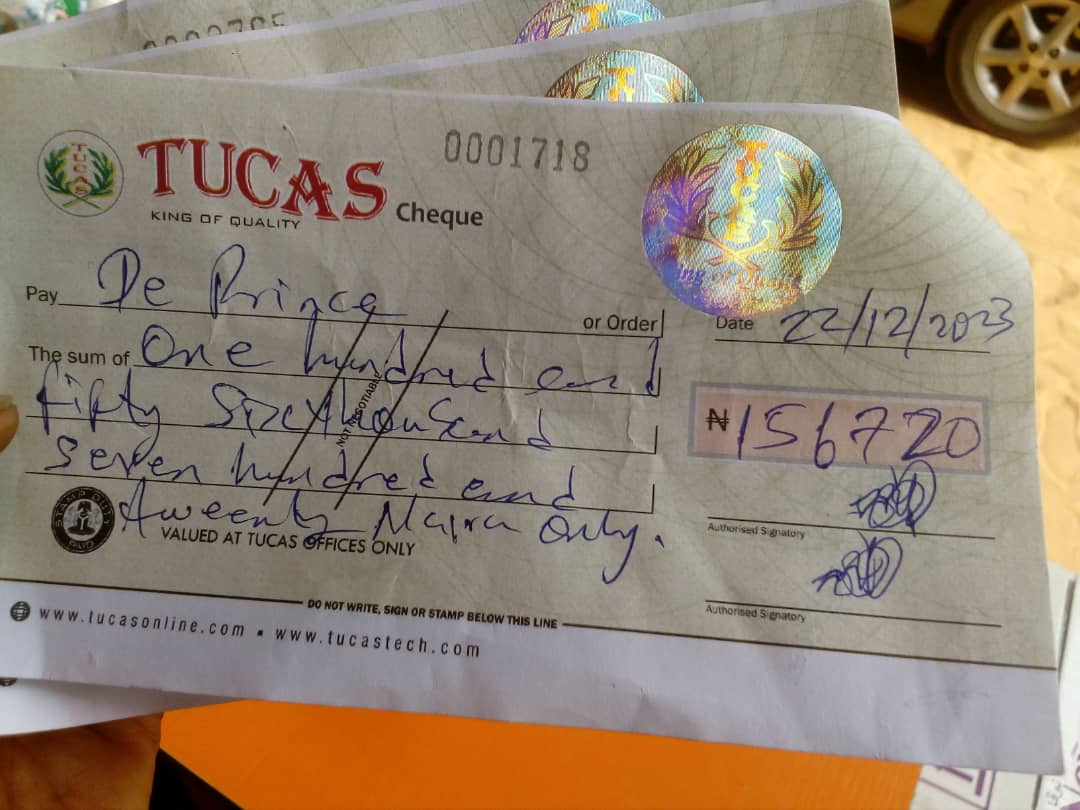 TUCAS
TUCAS
KING OF QUALITY
Cheque
0001718
TUCAS
Pay De Prince or Order
Date 22/12/2023
The sum of One hundred and
fifty Six thousand
seven hundred and
tweenty Naira Only.
NOT NEGOTIABLE
₦156720
STAMP DUTY
PAID
VALUED AT TUCAS OFFICES ONLY
Authorised Signatory
Authorised Signatory
DO NOT WRITE, SIGN OR STAMP BELOW THIS LINE
www.tucasonline.com ▪ www.tucastech.com